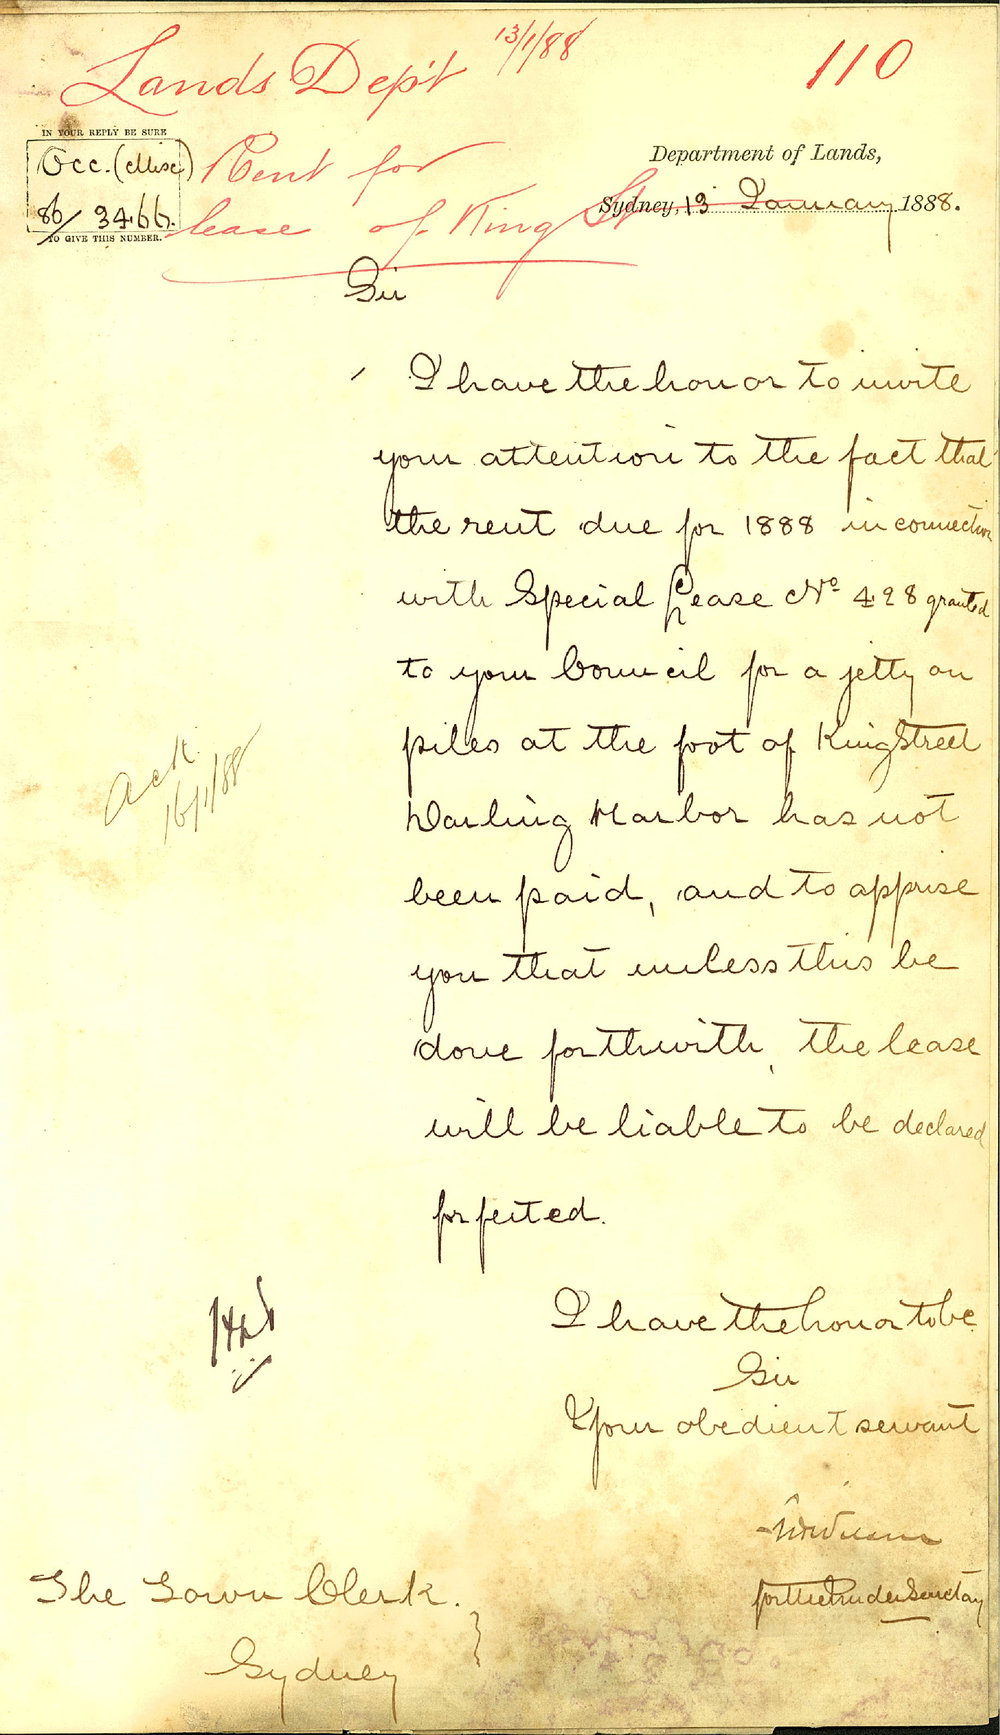 Lands Dep't 13/1/88
110
IN YOUR REPLY BE SURE
Occ. (Misc)
86/3466
TO GIVE THIS NUMBER.
Rent for
lease of King St
Department of Lands,
Sydney, 13 January 1888.
Sir
I have the honor to invite
your attention to the fact that
the rent due for 1888 in connection
with Special Lease No 428 granted
to your Council for a jetty on
piles at the foot of King Street
Darling Harbor has not
been paid, and to apprise
you that unless this be
done forthwith, the lease
will be liable to be declared
forfeited.
Ack.
16/1/88
I have the honor to be
Sir
Your obedient servant
for the Under Secretary
The Town Clerk.
Sydney